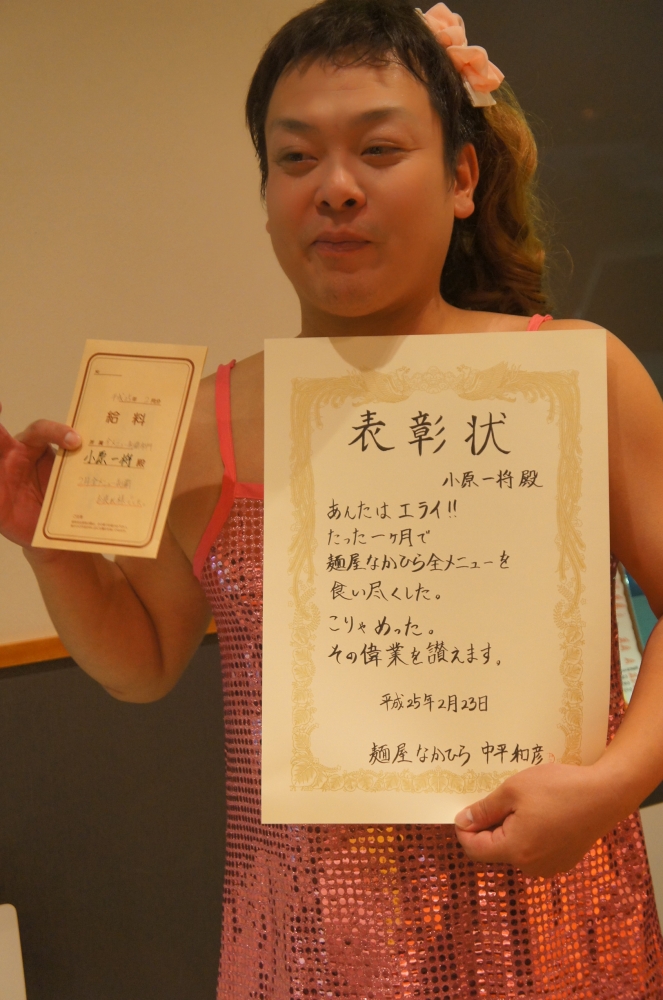 給料
小原一将殿
表彰状
小原一将殿
あんたはエライ!!
たった一ヶ月で
麺屋なかひら全メニューを
食い尽くした。
こりゃめった。
その偉業を讃えます。
平成25年2月23日
麺屋なかひら 中平和彦